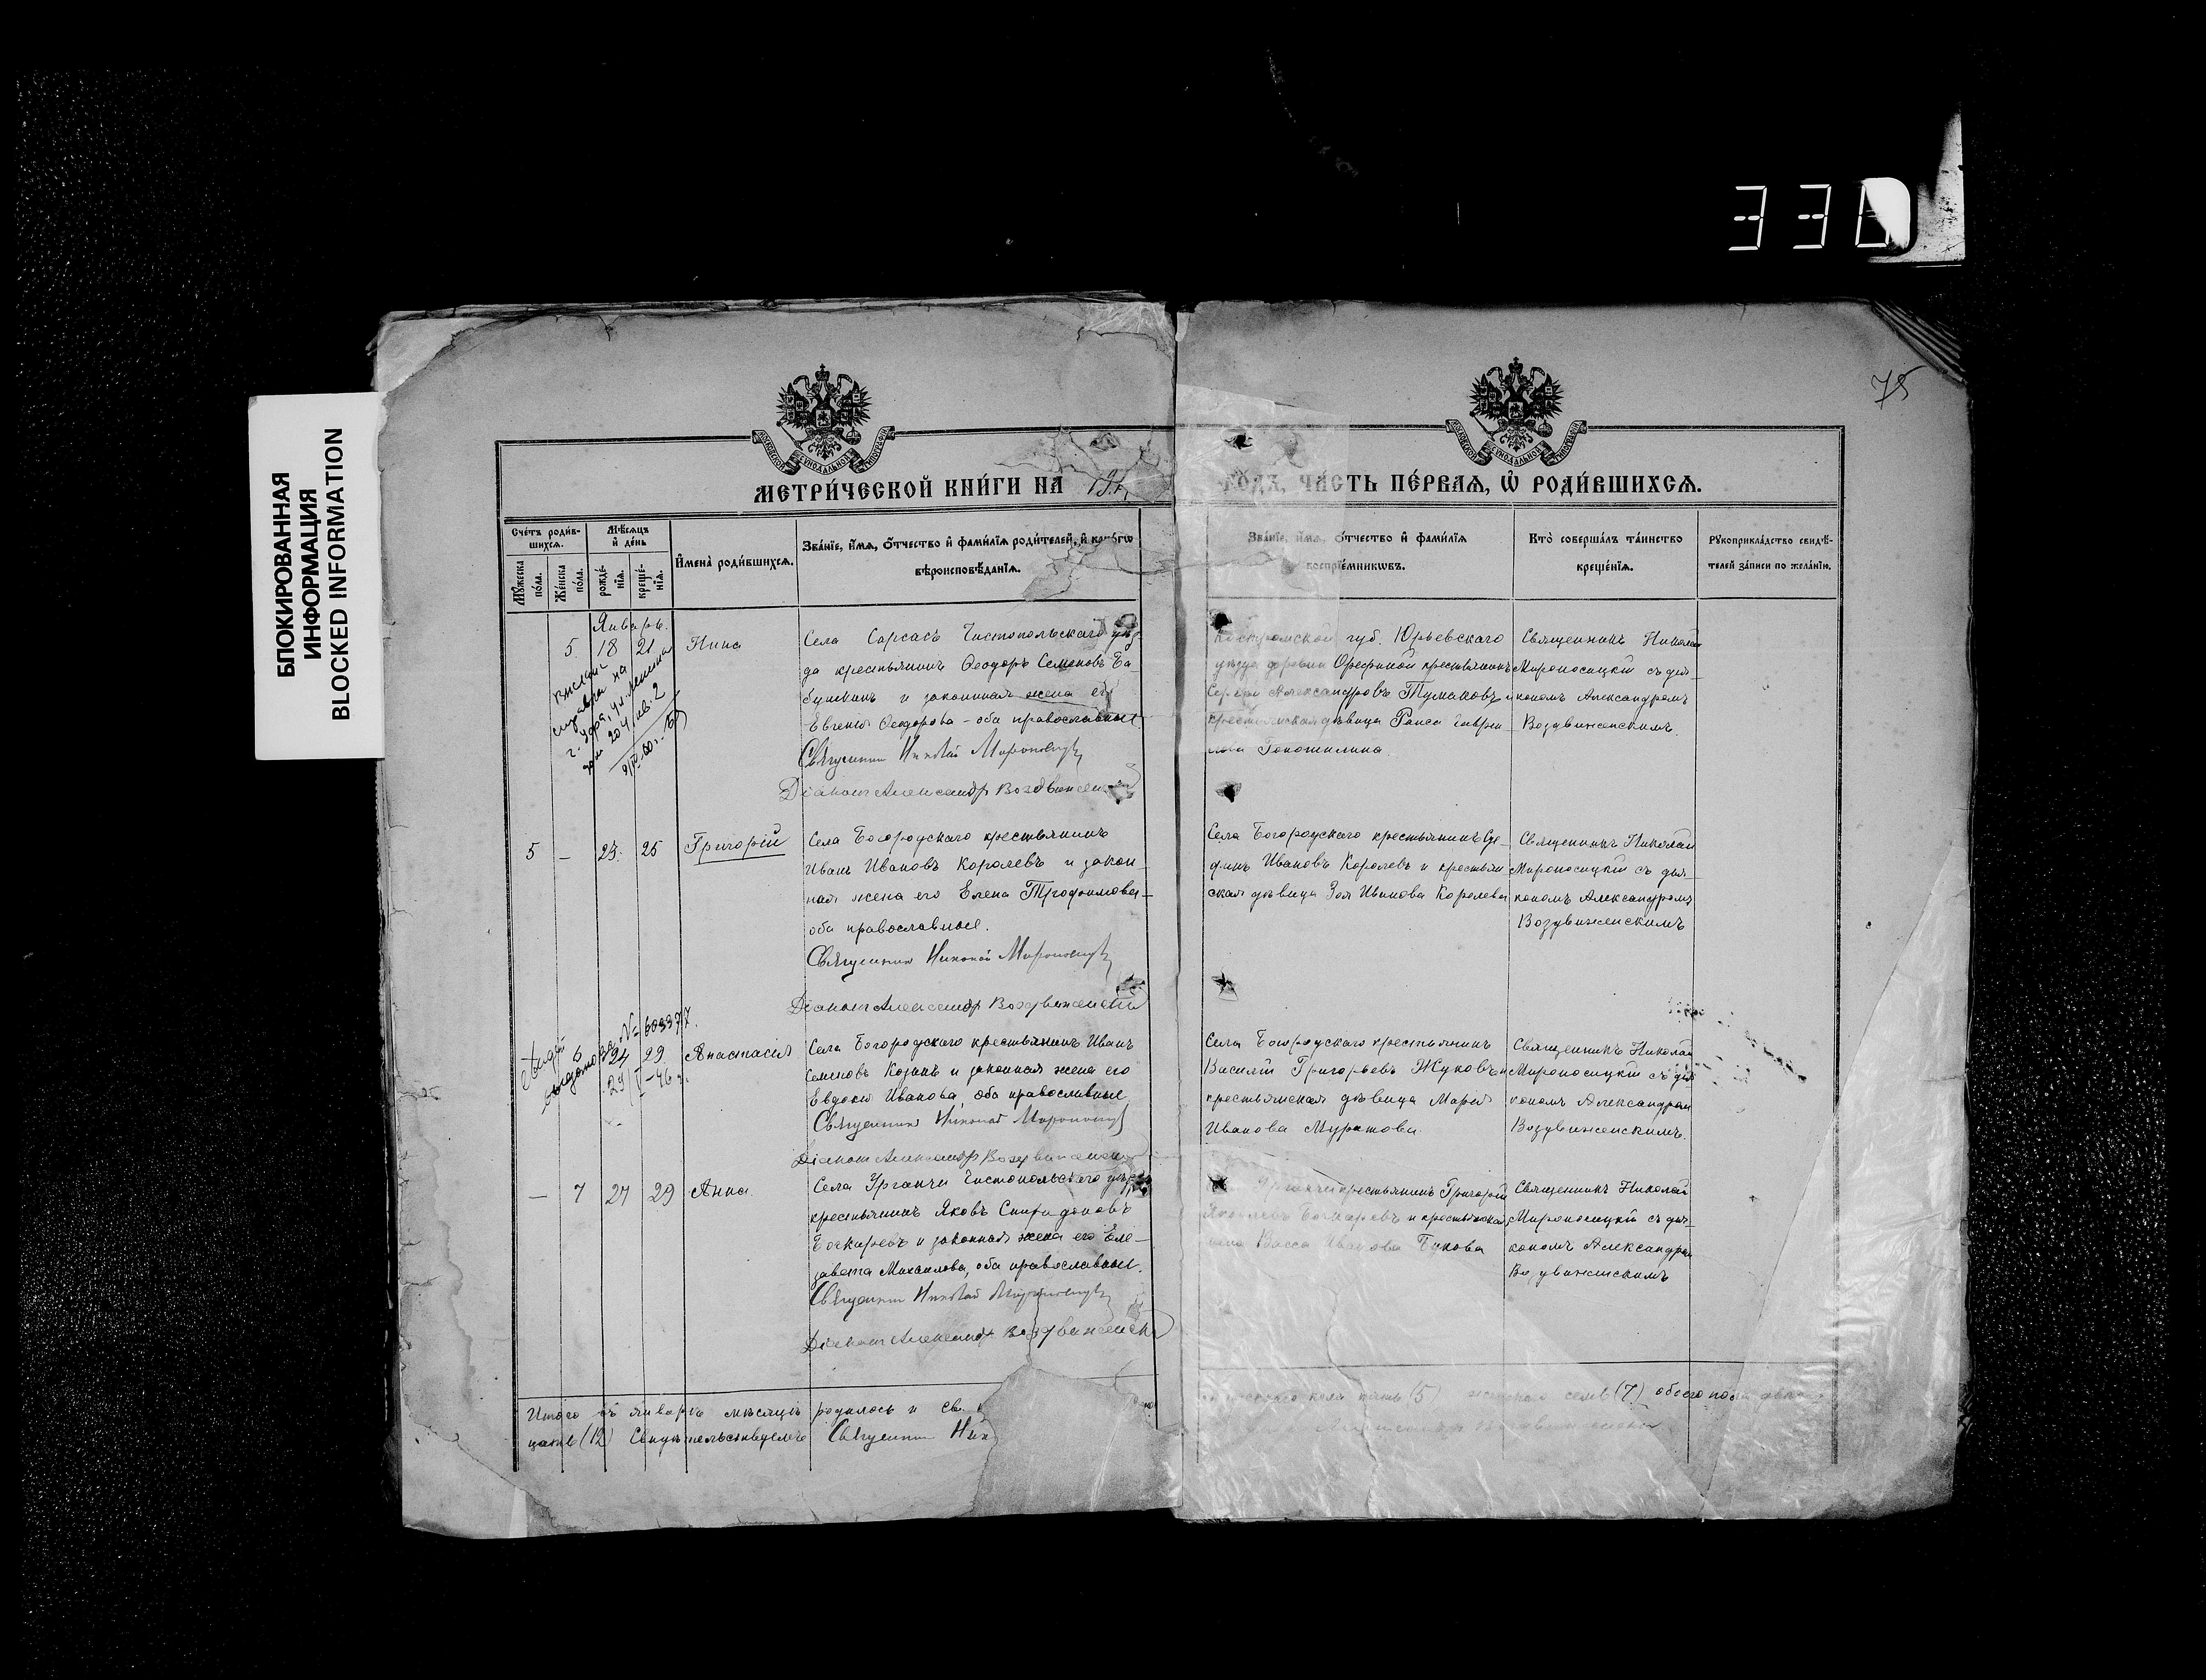 330
БЛОКИРОВАННАЯ
ИНФОРМАЦИЯ
BLOCKED INFORMATION
75
МЕТРИ́ЧЕСКОЙ КНИ́ГИ НА 19
ГОДЪ, ЧА́СТЬ ПЕ́РВАЯ, Ѡ РОДИ́ВШИХСЯ.
Сче́тъ роди́в-
шихся.
Мꙋ́жеска
по́ла.
Же́нска
по́ла.
Мѣ́сяцъ
и҆ де́нь
рожде́-
нїя.
креще́-
нїя.
И҆мена̀ роди́вшихся.
Зва́нїе, и҆́мя, ѻ҆́тчество и҆ фами́лїя роди́телей, и҆ како́гѡ
вѣроисповѣ́данїя.
Зва́нїе, и҆́мя, ѻ҆́тчество и҆ фами́лїя
воспрїе́мникѡвъ.
Кто̀ соверша́лъ та́инство
креще́нїя.
Рꙋкоприкла́дство свидѣ́-
телей за́писи по жела́нїю.
Январь.
5. 18 21 Нина
Села Сарсасъ Чистопольскаго уѣз
да крестьянинъ Ѳеодоръ Семеновъ Ба-
бушкинъ и законная жена его
Евгенія Ѳеодорова - оба православные
Священникъ Николай Мироносицкій
Діаконъ Александр Воздвиженскій
Костромской губ. Юрьевскаго
уѣзда деревни крестьянинъ
Сергѣй Александровъ Тумаковъ и
крестьянская дѣвица Раиса Гаври
лова
Священникъ Николай
Мироносицкій съ діа-
кономъ Александромъ
Воздвиженскимъ.
Выслан
справка на
г. Уфа, ул. Ленина
кв. 2
5 — 23. 25 Григорій
Села Богородскаго крестьянинъ
Иванъ Ивановъ Королевъ и закон
ная жена его Елена Трофимова -
оба православные.
Священникъ Николай Мироносицкій
Діаконъ Александр Воздвиженскій
Села Богородскаго крестьянинъ
Ивановъ Королевъ и крестьян
ская дѣвица Зоя Иванова Королева
Священникъ Николай
Мироносицкій съ діа-
кономъ Александромъ
Воздвиженскимъ
выдано № 60
6 24 29 Анастасія
Села Богородскаго крестьянинъ Иванъ
Семеновъ Козинъ и законная жена его
Евдокія Иванова, оба православные
Священникъ Николай Мироносицкій
Діаконъ Александр Воздвиженскій
Села Богородскаго крестьянинъ
Василій Григорьевъ Жуковъ и
крестьянская дѣвица Марія
Иванова Муратова.
Священникъ Николай
Мироносицкій съ діа
кономъ Александром
Воздвиженскимъ.
— 7 27 29 Анна.
Села Урганчи Чистопольскаго уѣзда
крестьянинъ Яковъ Спиридоновъ
Бочкаревъ и законная жена его Ели-
завета Михаилова, оба православные.
Священникъ Николай Мироносицкій
Діаконъ Александр Воздвиженскій
крестьянинъ Григорій
Яковлевъ Бочкаревъ и крестьянская
Васса Иванова
Священникъ Николай
Мироносицкій съ діа-
кономъ Александром
Воздвиженскимъ
Итого въ январѣ мѣсяцѣ родилось и
мужскаго пола пять (5) женскаго семь (7) обоего пола двѣнад
цать (12) Свидѣтельствуемъ Священникъ Ник